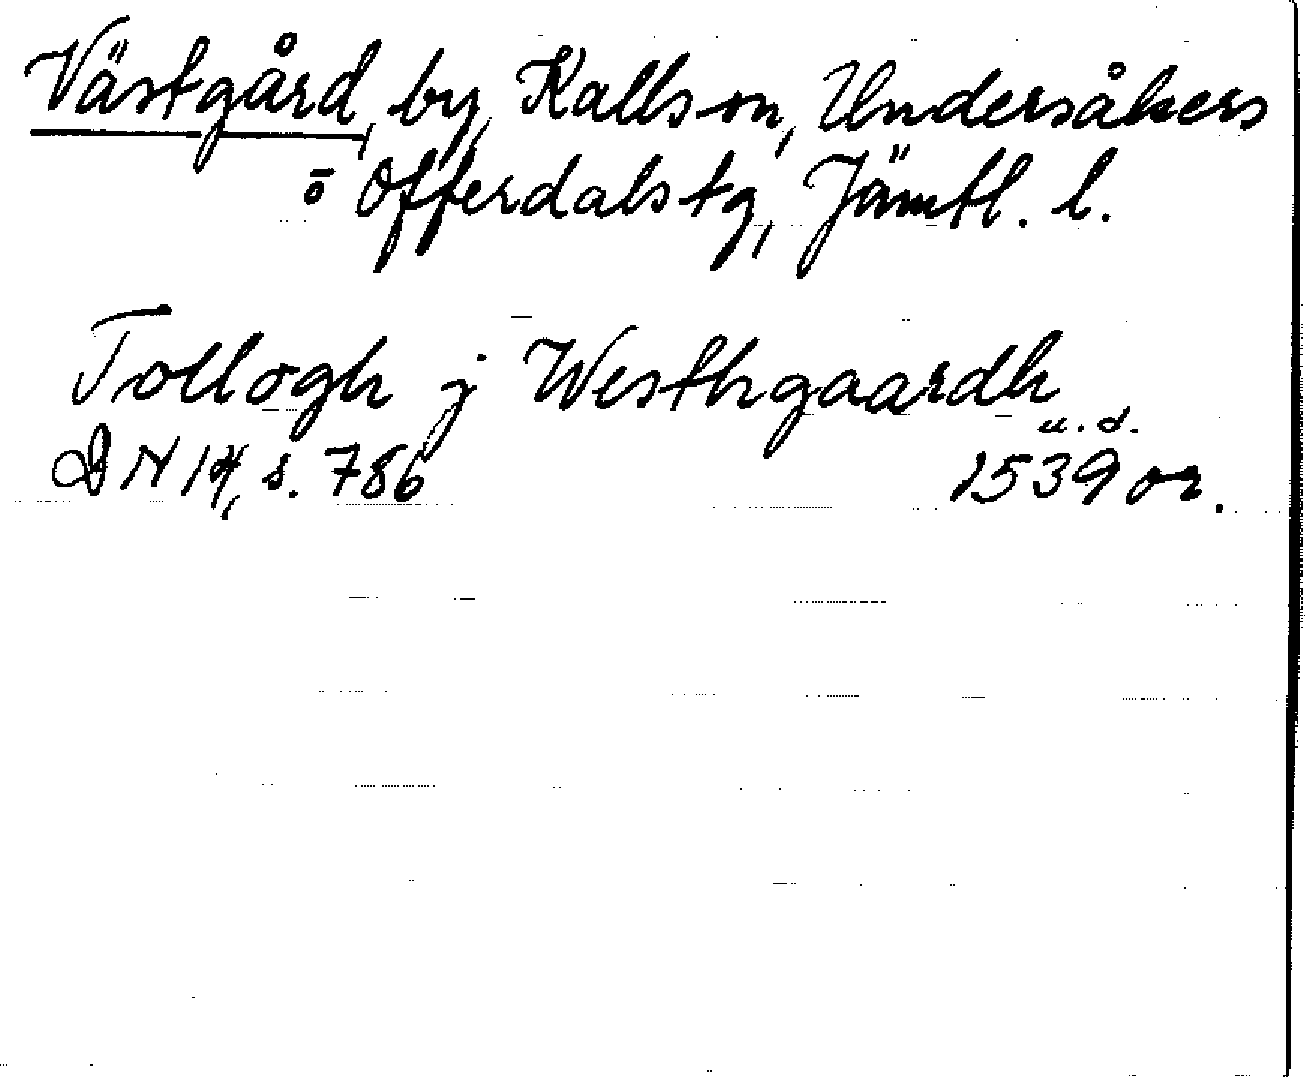 Västgård, by, Kalls sn, Undersåkers
o Offerdals tg, Jämtl. l.
Tollogh j Westhgaardh
u. d.
DN 14, s. 786 1539 or.